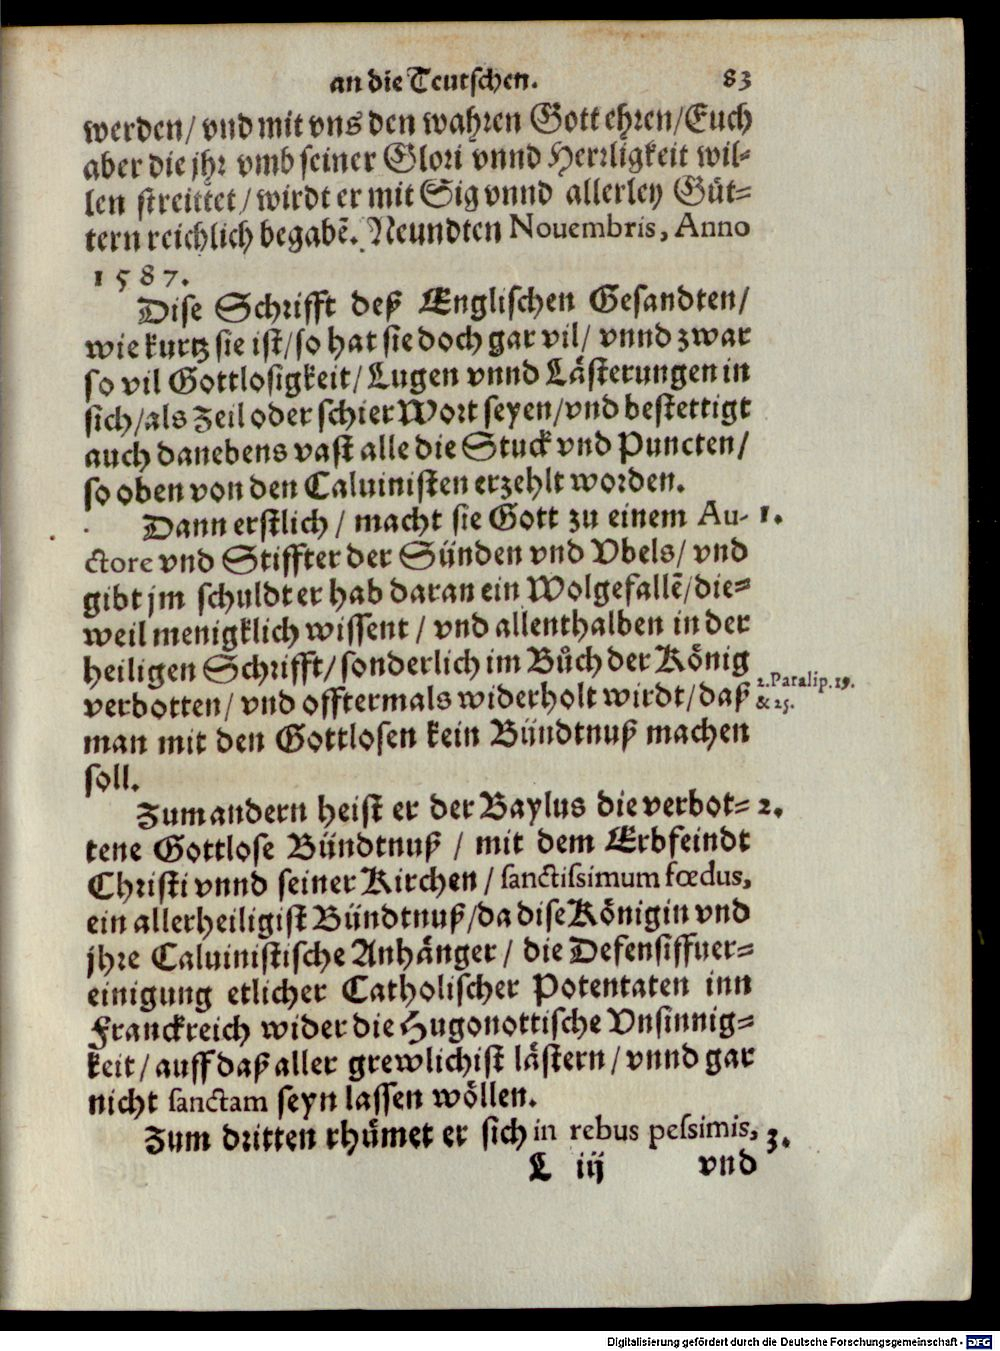 an die Teutschen. 83
werden/ vnd mit vns den wahren Gott ehren/ Euch
aber die jhr vmb seiner Glori vnnd Herrligkeit wil-
len streittet/ wirdt er mit Sig vnnd allerley Güt-
tern reichlich begabẽ. Neundten Nouembris, Anno
1587.
Dise Schrifft deß Englischen Gesandten/
wie kurtz sie ist/ so hat sie doch gar vil/ vnnd zwar
so vil Gottlosigkeit/ Lugen vnnd Lästerungen in
sich/ als Zeil oder schier Wort seyen/ vnd bestettigt
auch danebens vast alle die Stuck vnd Puncten/
so oben von den Caluinisten erzehlt worden.
Dann erstlich/ macht sie Gott zu einem Au- 1.
ctore vnd Stiffter der Sünden vnd Vbels/ vnd
gibt jm schuldt er hab daran ein Wolgefallẽ/ die-
weil menigklich wissent/ vnd allenthalben in der
heiligen Schrifft/ sonderlich im Bůch der König
2.Paralip.19.
verbotten/ vnd offtermals widerholt wirdt/ daß
& 25.
man mit den Gottlosen kein Bündtnuß machen
soll.
Zum andern heist er der Baylus die verbot- 2.
tene Gottlose Bündtnuß/ mit dem Erbfeindt
Christi vnnd seiner Kirchen/ sanctissimum fœdus,
ein allerheiligist Bündtnuß/ da dise Königin vnd
jhre Caluinistische Anhänger/ die Defensiffuer-
einigung etlicher Catholischer Potentaten inn
Franckreich wider die Hugonottische Vnsinnig-
keit/ auff daß aller grewlichist lästern/ vnnd gar
nicht sanctam seyn lassen wöllen.
Zum dritten rhümet er sich in rebus pessimis, 3.
L iij vnd
Digitalisierung gefördert durch die Deutsche Forschungsgemeinschaft - DFG